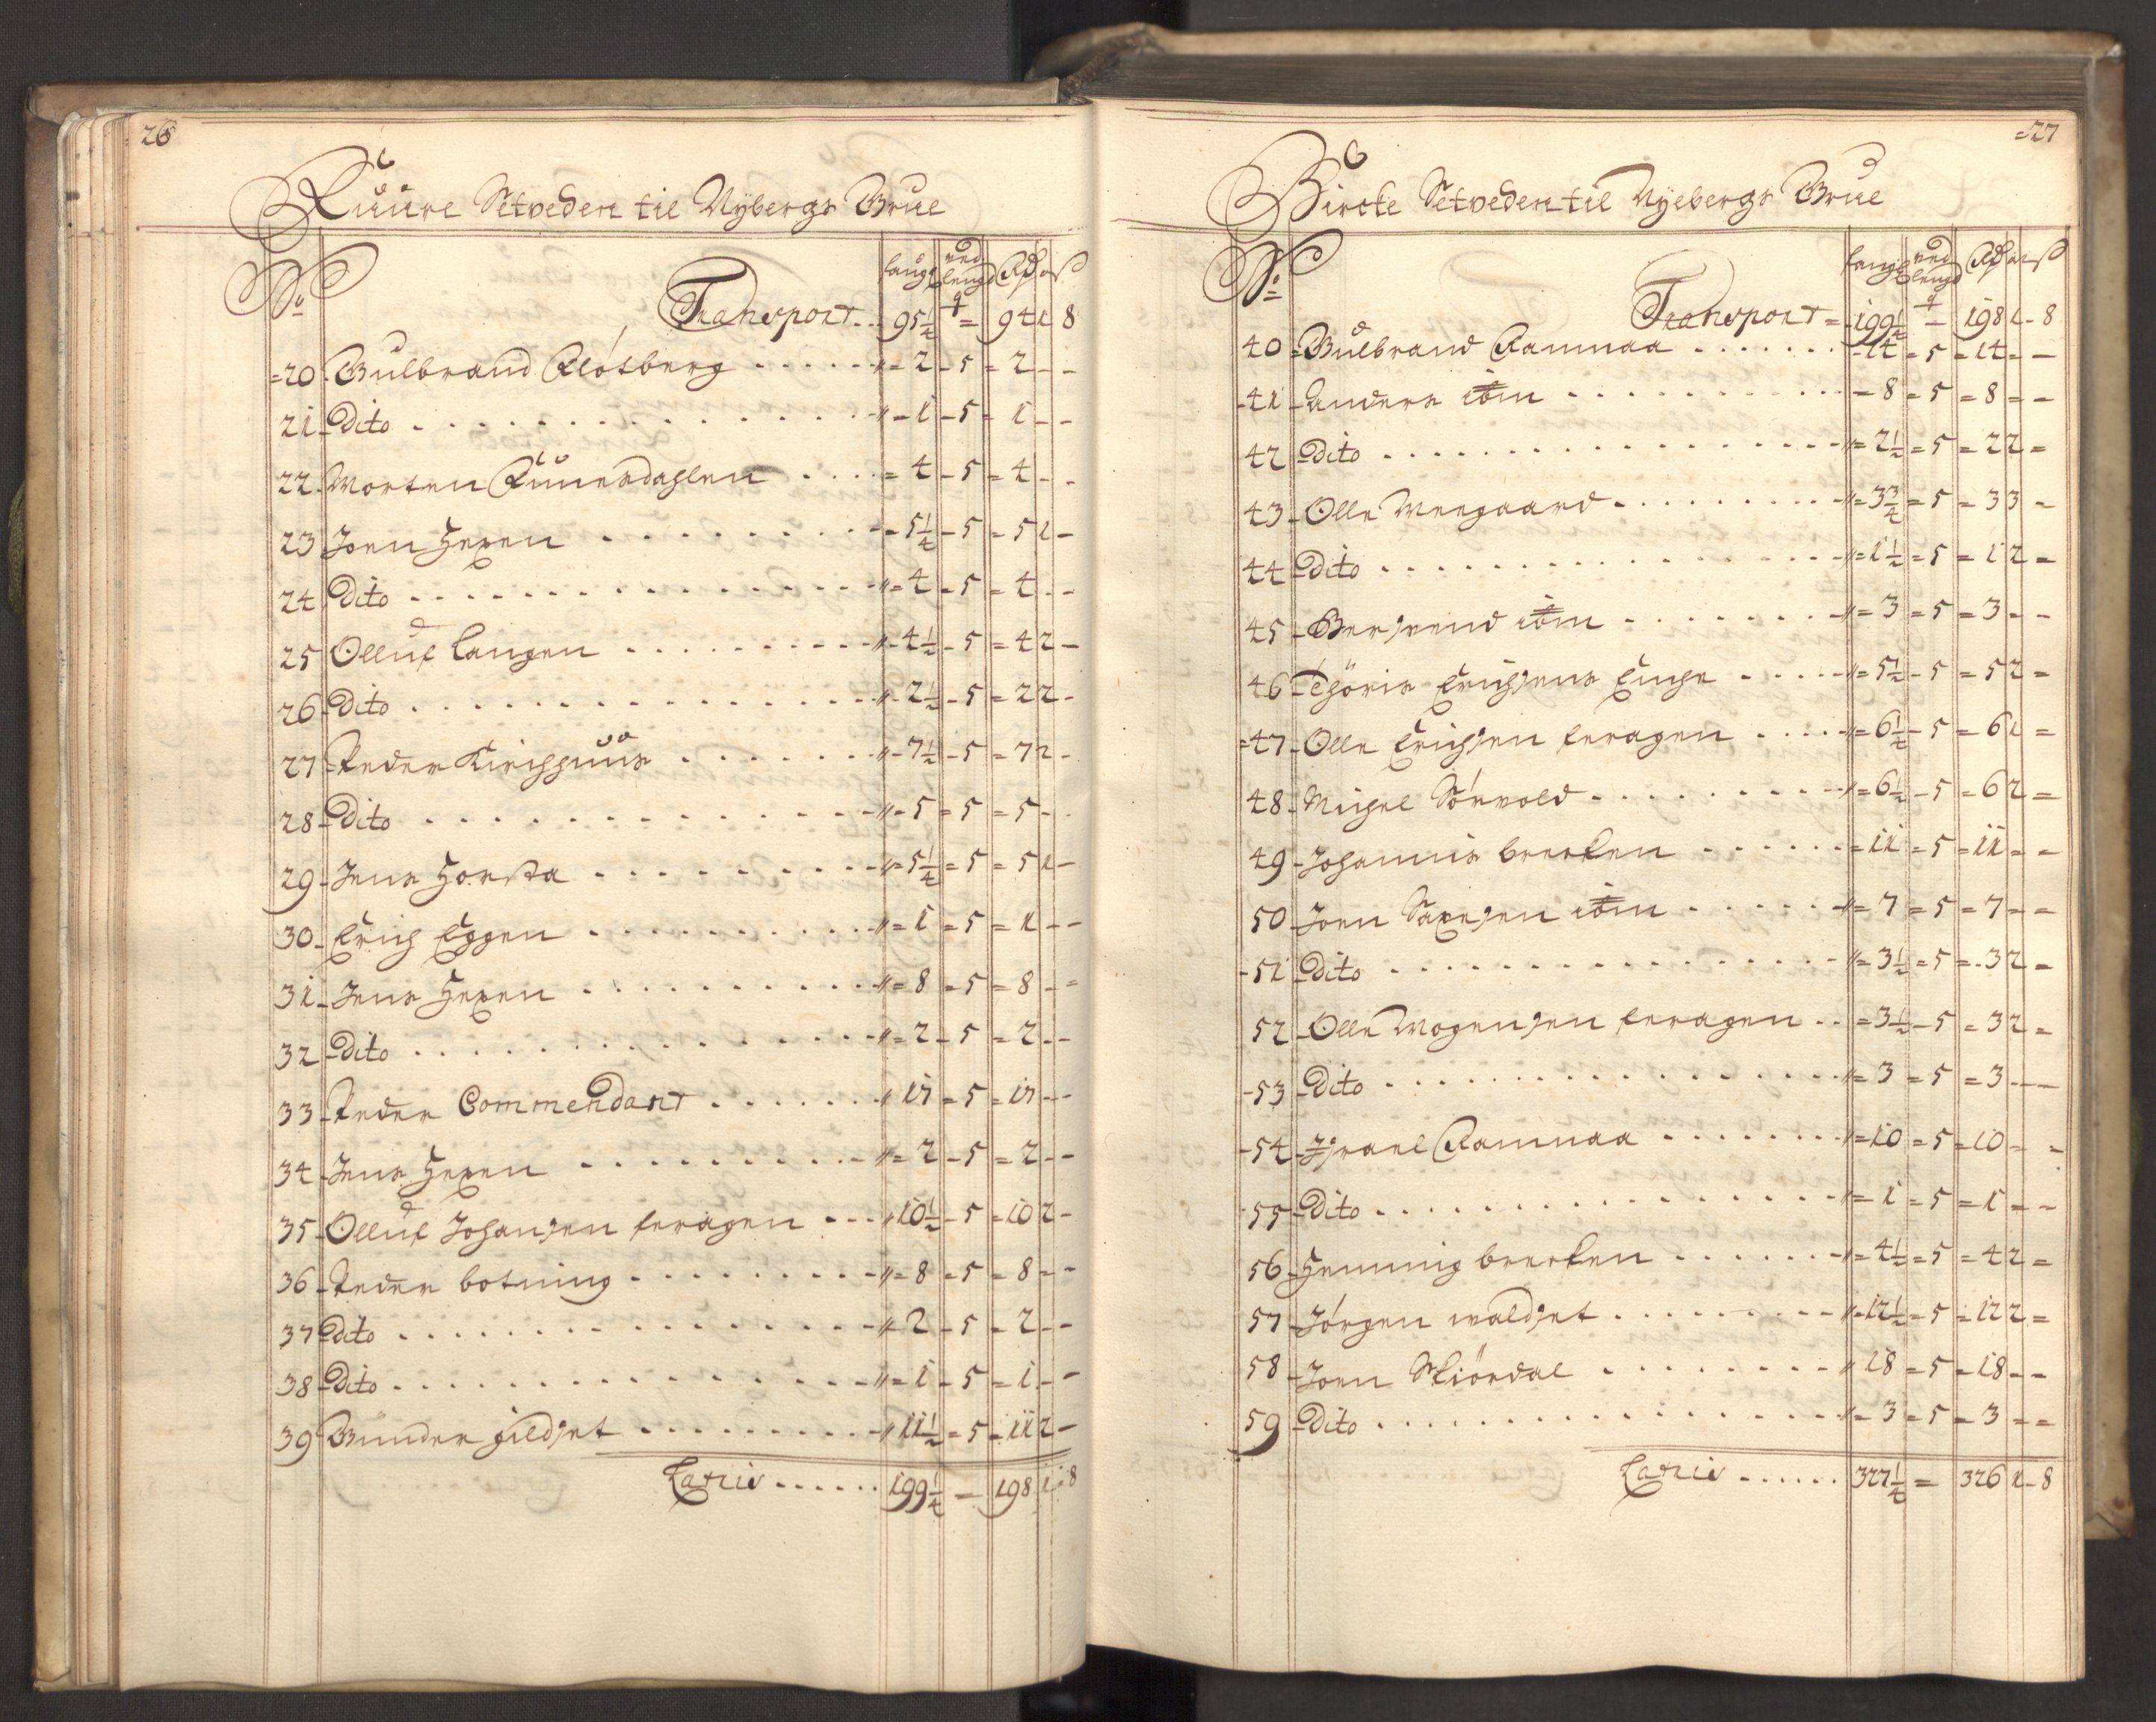 26
Kuure Setveden til Nÿbergs Brue
No
faugr ved lengd Rdr ort ß
Transport .. 95 1/4 = 94 1 8
=20 Gulbrand Kløtberg ...... 2 - 5 = 2 - -
21 Dito ...... 1 - 5 - 1 - -
22 Morten Kuuerdahlen .... = 4 - 5 = 4 - -
23 Joen Hexen ...... 5 1/4 - 5 = 5 1 -
24 Dito ...... = 4 = 5 = 4 - -
25 Olluf Langen ...... 4 1/2 - 5 = 4 2 -
26 Dito ...... 2 1/2 - 5 = 2 2 -
27 Peder Kirchhuus ...... 7 1/2 - 5 = 7 2 -
28 Dito ...... 5 = 5 = 5 - -
29 Jens Horsta ...... = 5 1/4 = 5 = 5 1 -
30 Erich Eggen ...... = 1 = 5 = 1 - -
31 Jens Hexen ...... = 8 = 5 = 8 - =
32 Dito ...... = 2 - 5 = 2 - -
33 Peder Commendant ...... 17 = 5 = 17 - -
34 Jens Hexen ...... = 2 - 5 = 2 - -
35 Olluf Johansen feragen ... 10 1/2 - 5 = 10 2 -
36 Peder botning ...... = 8 = 5 = 8 - -
37 Dito ...... 2 - 5 = 2 - -
38 Dito ...... = 1 - 5 = 1 - -
39 Gunder gildset ...... 11 1/2 = 5 = 11 2 -
Latus ...... 199 1/4 — 198 1 8
=27
Bircke Setveden til Nÿebergs Brue
No
faugr ved lengd Rdr ort ß
Transport = 199 1/4 — 198 1 - 8
40 Gulbrand Rammaa ...... 14 = 5 = 14 = -
41 Anders ibm ...... = 8 = 5 = 8 = -
42 Dito ...... = 2 1/2 = 5 = 2 2 =
43 Olle Weegaard ...... = 3 3/4 = 5 = 3 3 =
44 Dito ...... = 1 1/2 = 5 = 1 2 =
45 Bersvend ibm ...... = 3 = 5 = 3 - -
46 Thöris Erichsens Enche .... = 5 1/2 - 5 = 5 2 =
=47 Olle Erichsen feragen .... = 6 1/4 - 5 = 6 1 =
48 Michel Sørvold ...... = 6 1/2 - 5 = 6 2 =
49 Johannis brecken ...... = 11 = 5 = 11 = =
50 Joen Saxesen ibm ...... = 7 = 5 = 7 = =
51 Dito ...... = 3 1/2 = 5 = 3 2 =
52 Olle Mogensen feragen .. = 3 1/2 - 5 = 3 2 =
53 Dito ...... = 3 = 5 = 3 - -
54 Israel Rammaa ...... = 10 = 5 = 10 = -
55 Dito ...... = 1 = 5 = 1 = -
56 Henning brecken ...... = 4 1/2 = 5 = 4 2 =
57 Jørgen waldset ...... = 12 1/2 = 5 = 12 2 =
58 Joen Stiördal ...... 18 = 5 = 18 - -
59 Dito ...... = 3 = 5 = 3 = =
Latus ...... 327 1/4 = 326 1 - 8